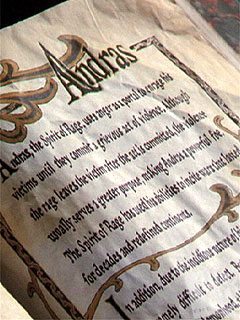 Andras
Andras, the Spirit of Rage, uses anger as a portal to enrage his
victims until they commit a grievous act of violence. Although
the rage leaves the victim after the act is committed, the violence
usually serves a greater purpose, making Andras a powerful foe.
The Spirit of Rage has used his abilities to incite wars and feuds
for decades and to
In addition, due to the insidious nature of
difficult to detect.